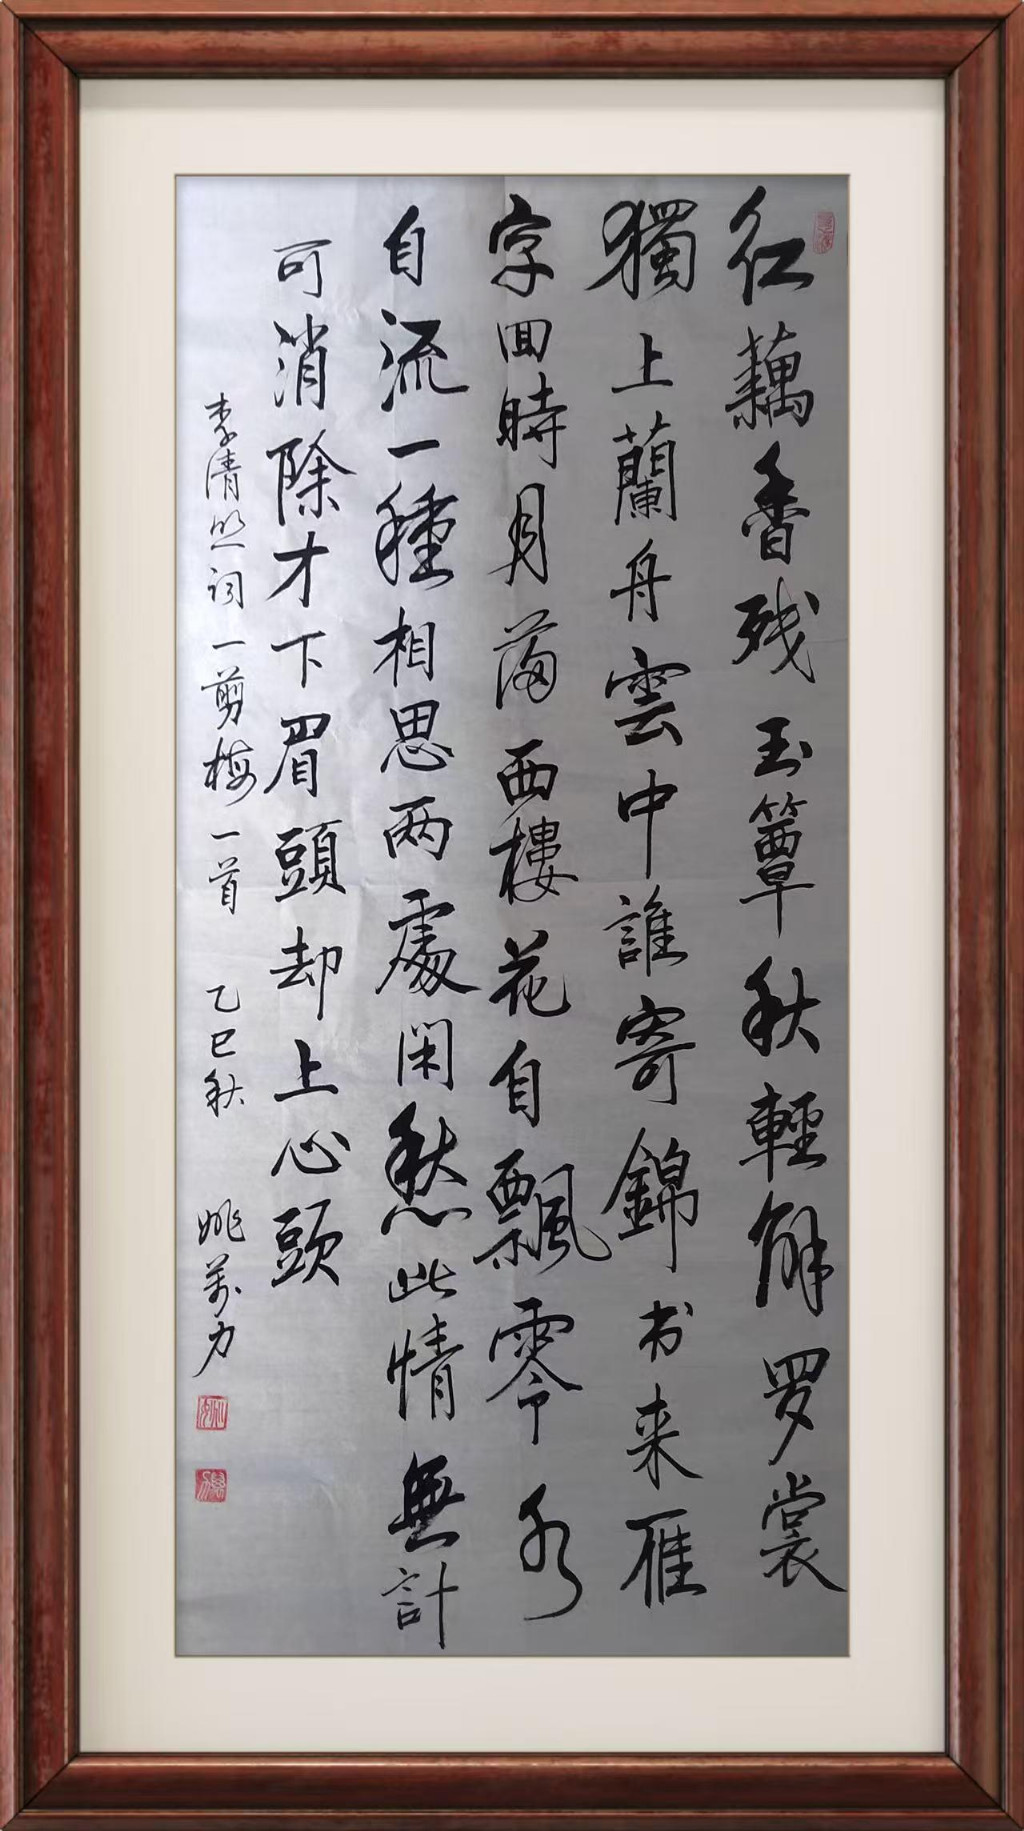 红藕香残玉簟秋輕解罗裳
獨上蘭舟雲中誰寄錦书来雁
字回時月滿西樓花自飄零水
自流一種相思两處閑愁此情無計
可消除才下眉頭却上心头
李清照词一剪梅一首 乙巳秋 姚万力